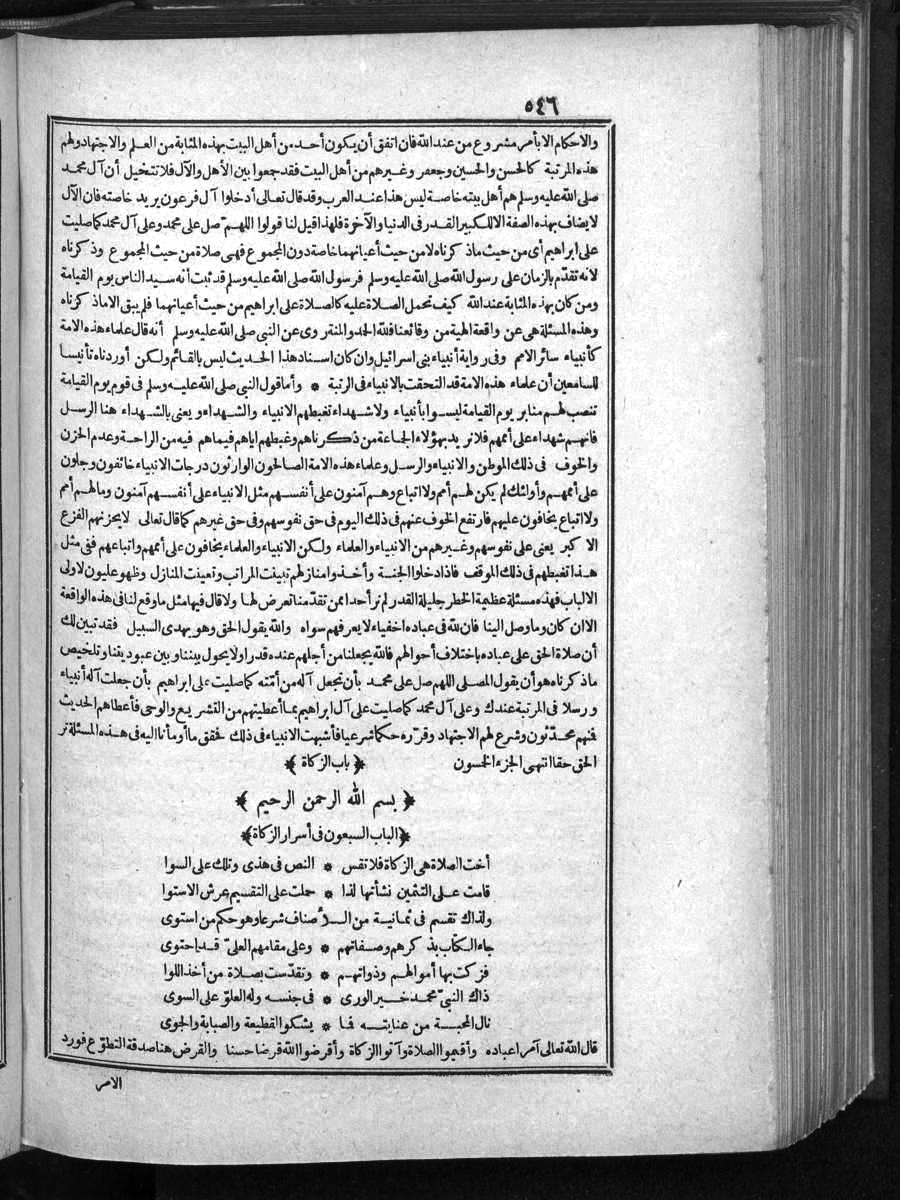 ٥٤٦
والاحكام الا بأمر مشروع من عند الله فان اتفق أن يكون أحد من أهل البيت بهذه المثابة من العلم والاجتهاد ولهم
هذه المرتبة كالحسن والحسين وجعفر وغيرهم من أهل البيت فقد جمعوا بين الأهل والآل فلا تتخيل أن آل محمد
صلى الله عليه وسلم هم أهل بيته خاصة ليس هذا عند العرب وقد قال تعالى أدخلوا آل فرعون يريد خاصته فان الآل
لا يضاف بهذه الصفة الا للكبير القدر في الدنيا والآخرة فلهذا قيل لنا قولوا اللهم صل على محمد وعلى آل محمد كما صليت
على ابراهيم أى من حيث ماذكرناه لا من حيث أعيانهما خاصة دون المجموع فهى صلاة من حيث المجموع وذكرناه
لانه تقدم بالزمان على رسول الله صلى الله عليه وسلم فرسول الله صلى الله عليه وسلم قد ثبت أنه سيد الناس يوم القيامة
ومن كان بهذه المثابة عند الله كيف تحمل الصلاة عليه كالصلاة على ابراهيم من حيث أعيانهما فلم يبق الا ماذكرناه
وهذه المسئلة هى عن واقعة الهية من وقائعنا فلله الحمد والمنة روى عن النبى صلى الله عليه وسلم أنه قال علماء هذه الامة
كأنبياء سائر الامم وفى رواية أنبياء بنى اسرائيل وان كان اسناد هذا الحديث ليس بالقائم ولكن أوردناه تأنيسا
للسامعين أن علماء هذه الامة قد التحقت بالانبياء فى الرتبة * وأما قول النبى صلى الله عليه وسلم فى قوم يوم القيامة
تنصب لهم منابر يوم القيامة ليسوا بأنبياء ولا شهداء تغبطهم الانبياء والشهداء ويعنى بالشهداء هنا الرسل
فانهم شهداء على أممهم فلا نريد بهؤلاء الجماعة من ذكرناهم وغبطهم اياهم فيما هم فيه من الراحة وعدم الحزن
والخوف فى ذلك الموطن والانبياء والرسل وعلماء هذه الامة الصالحون الوارثون درجات الانبياء خائفون وجلون
على أممهم وأولئك لم يكن لهم أمم ولا اتباع وهم آمنون على أنفسهم مثل الانبياء على أنفسهم آمنون وما لهم أمم
ولا اتباع يخافون عليهم فارتفع الخوف عنهم فى ذلك اليوم فى حق نفوسهم وفى حق غيرهم كما قال تعالى لا يحزنهم الفزع
الاكبر يعنى على نفوسهم وغيرهم من الانبياء والعلماء ولكن الانبياء والعلماء يخافون على أممهم واتباعهم ففى مثل
هذا تغبطهم فى ذلك الموقف فاذا دخلوا الجنة وأخذوا منازلهم تبينت المراتب وتعينت المنازل وظهر عليون لاولى
الالباب فهذه مسئلة عظيمة الخطر جليلة القدر لم نر أحدا ممن تقدمنا تعرض لها ولا قال فيها مثل ما وقع لنا فى هذه الواقعة
الا ان كان وما وصل الينا فان لله فى عباده اخفياء لا يعرفهم سواه والله يقول الحق وهو يهدى السبيل فقد تبين لك
أن صلاة الحق على عباده باختلاف أحوالهم فالله يجعلنا من أجلهم عنده قدرا ولا يحول بيننا وبين عبوديتنا وتلخيص
ماذكرناه هو أن يقول المصلى اللهم صل على محمد بأن تجعل آله من أمته كما صليت على ابراهيم بأن جعلت آله أنبياء
ورسلا فى المرتبة عندك وعلى آل محمد كما صليت على آل ابراهيم بما أعطيتهم من التشريع والوحى فأعطاهم الحديث
فمنهم محدثون وشرع لهم الاجتهاد وقرره حكما شرعيا فأشبهت الانبياء فى ذلك فحقق ما أومأنا اليه فى هذه المسئلة تر
الحق حقا انتهى الجزء الخمسون ﴿باب الزكاة﴾
﴿بسم الله الرحمن الرحيم﴾
﴿الباب السبعون فى أسرار الزكاة﴾
أخت الصلاة هى الزكاة فلا تقس * النص فى هذى وتلك على السوا
قامت على التثمين نشأتها لذا * حملت على التقسيم عرش الاستوا
ولذاك تقسم فى ثمانية من الـ * أصناف شرعا وهو حكم من استوى
جاء الكتاب بذكرهم وصفاتهم * وعلى مقامهم العلىّ قد احتوى
فزكت بها أموالهم وذواتهم * وتقدّست بصلاة من أخذ اللوا
ذاك النبىّ محمد خير الورى * فى جنسه وله العلوّ على السوى
نال المحبة من عنايته فما * يشكو القطيعة والصبابة والجوى
قال الله تعالى آمرا عباده وأقيموا الصلاة وآتوا الزكاة وأقرضوا الله قرضا حسنا والقرض هنا صدقة التطوّع فورد
الامر